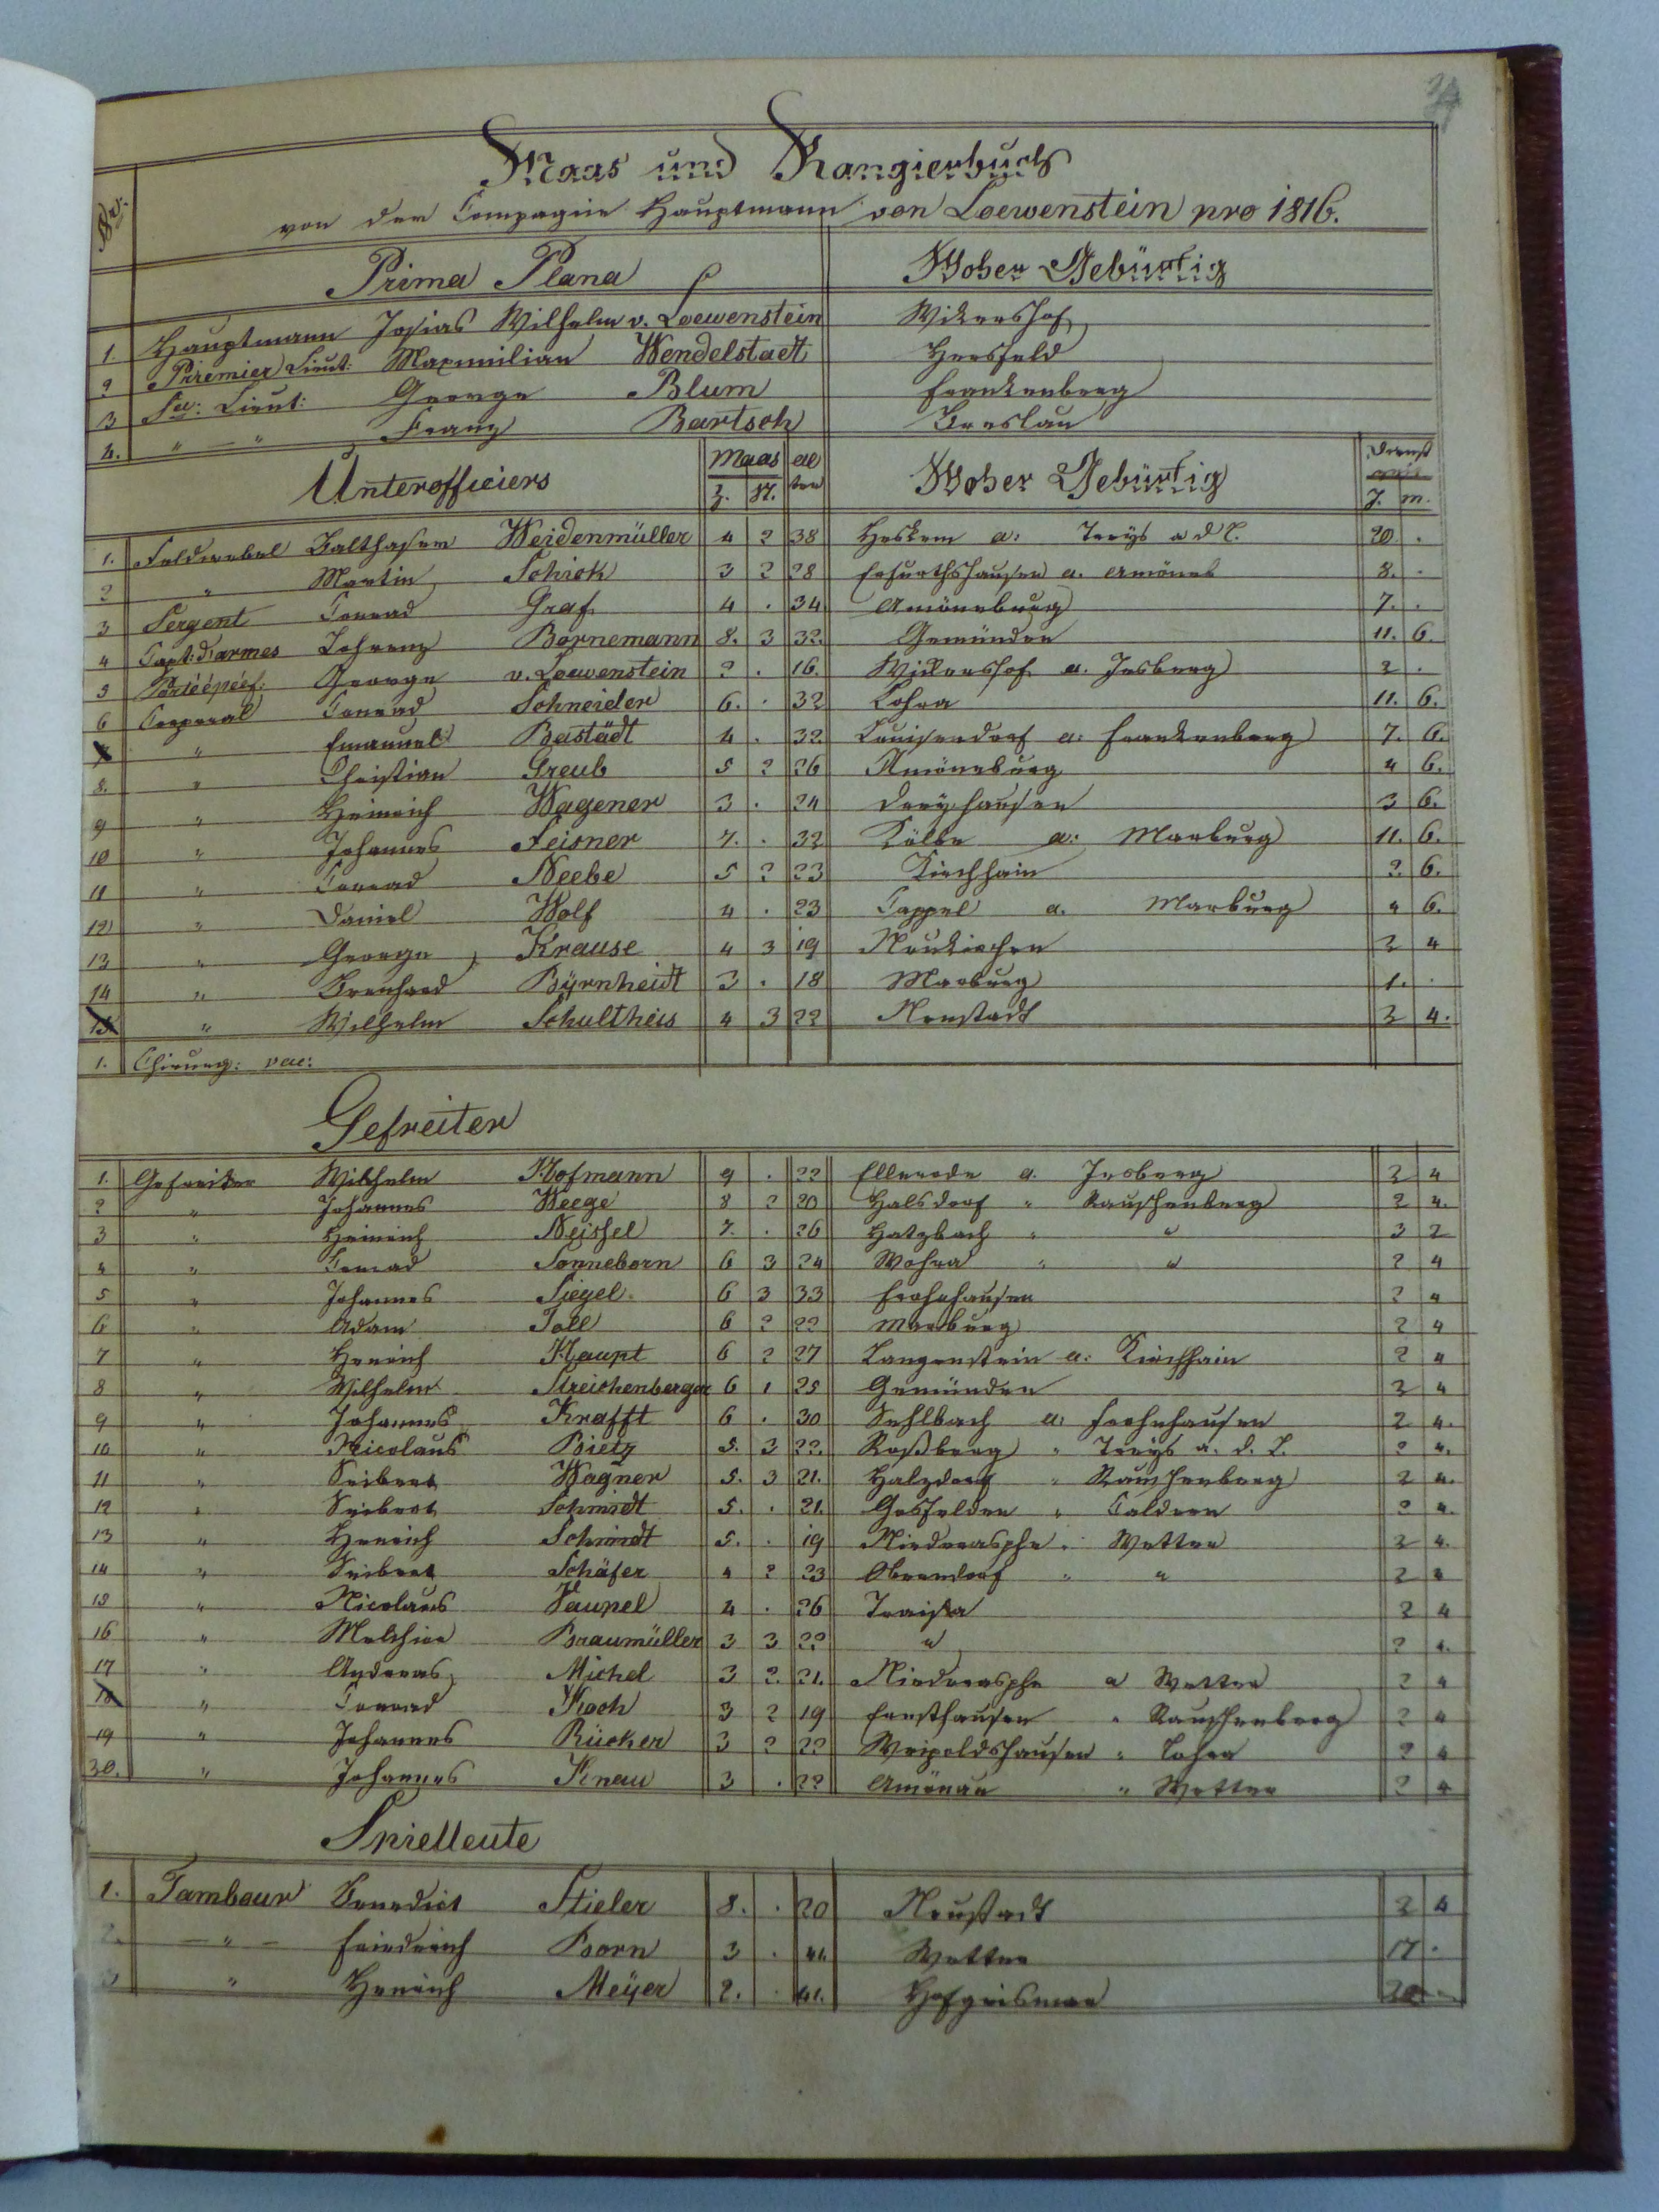 Maas und Rangierbuch
No. von der Compagnie Hauptmann von Loewenstein pro 1816.
Prima Plana Woher Gebürtig
1. Hauptmann Josias Wilhelm v. Loewenstein Wikershof
2 Premier Lieut: Maxmilian Wendelstaedt Hersfeld
3 Sec: Lieut: George Blum Frankenberg
4. " — " Franz Bartsch Breslau
Unterofficiers Maas al ter Woher Gebürtig Dienst
Z. St. J. M.
1. Feldwebel Balthaser Weidenmüller 4 2 38 Heskem a: Treys a d L. 20 .
2 " Martin Schick 3 2 28 Erfurthshausen a. Amöneb 8. .
3 Sergent Conrad Graf 4 . 34 Amöneburg 7. .
4 Capt: d'armes Lohrenz Bornemann 8. 3 32. Gemünden 11. 6.
5 Portéépéef: George v. Loewenstein 2 . 16. Wickershof a. Jesberg 2 .
6 Corporal Conrad Schneider 6. . 32 Lohra 11. 6.
7 " Emanuel Bastädt 4 . 32. Louisendorf a: Frankenberg 7. 6.
8. " Christian Greub 5 2 26 Amöneburg 4 6.
9 " Heinrich Wagener 3 . 24 Dreyhausen 3 6.
10 " Johannes Feisner 7. . 32 Kölbe a: Marburg 11. 6.
11 " Conrad Neebe 5 2 23 Kirchhain 2 6.
12 " Daniel Wolf 4 . 23 Cappel a. Marburg 4 6.
13 " George Krause 4 3 19 Neukirchen 2 4
14 " Bernhard Byrnheidt 3 . 18 Marburg 1. .
15 " Wilhelm Schultheis 4 3 22 Neustadt 2 4.
1. Chirurg: vac:
Gefreiter
1. Gefreiter Wilhelm Hofmann 9 . 22 Ellnrode a. Jesberg 2 4
2 " Johannes Weege 8 2 20 Halsdorf " Rauschenberg 2 4.
3 " Heinrich Neissel 7. . 26 Hatzbach " " 3 2
4 " Conrad Sonneborn 6 3 24 Wohra " " 2 4
5 " Johannes Siegel 6 3 33 Frohnhausen 2 4
6 " Adam Toll 6 2 22 Marburg 2 4
7 " Henrich Haupt 6 2 27 Langenstein a: Kirchhain 2 4
8 " Wilhelm Streichenberger 6 1 25 Gemünden 2 4
9 " Johannes Krafft 6 . 30 Sehlbach a: Frohnhausen 2 4.
10 " Nicolaus Bietz 5. 3 22. Roßberg " Treys a. d. L. 2 4.
11 " Seibert Wagner 5. 3 21. Halzdorf " Rauschenberg 2 4.
12 " Seibert Schmidt 5. . 21. Gosfelden " Caldern 2 4.
13 " Henrich Schmidt 5. . 19 Niederasphe " Wetter 2 4.
14 " Seibert Schäfer 4 2 23 Oberndorf " " 2 4
15 " Nicolaus Vaupel 4 . 26 Traisa 2 4
16 " Melchior Braumüller 3 3 22 " 2 4.
17 " Andreas Michel 3 2. 21. Niederasphe a Wetter 2 4
18 " Conrad Koch 3 2 19 Ernsthausen " Rauschenberg 2 4
19 " Johannes Rücker 3 2 22 Weipoldshausen " Lohra 2 4
20. " Johannes Knau 3 . 22 Amönau " Wetter 2 4
Spielleute
1. Tambour Benedict Stieler 8. . 20 Neustadt 2 4
2. — " — Friedrich Born 3 . 41. Wetter 17 .
3 " Henrich Meÿer 2. . 41. Hofgeismar 20